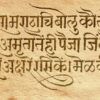 मराठाचि बोलु कौ
अमृतातेंही पैजा जिं
अक्षरें रसिकें मेळ